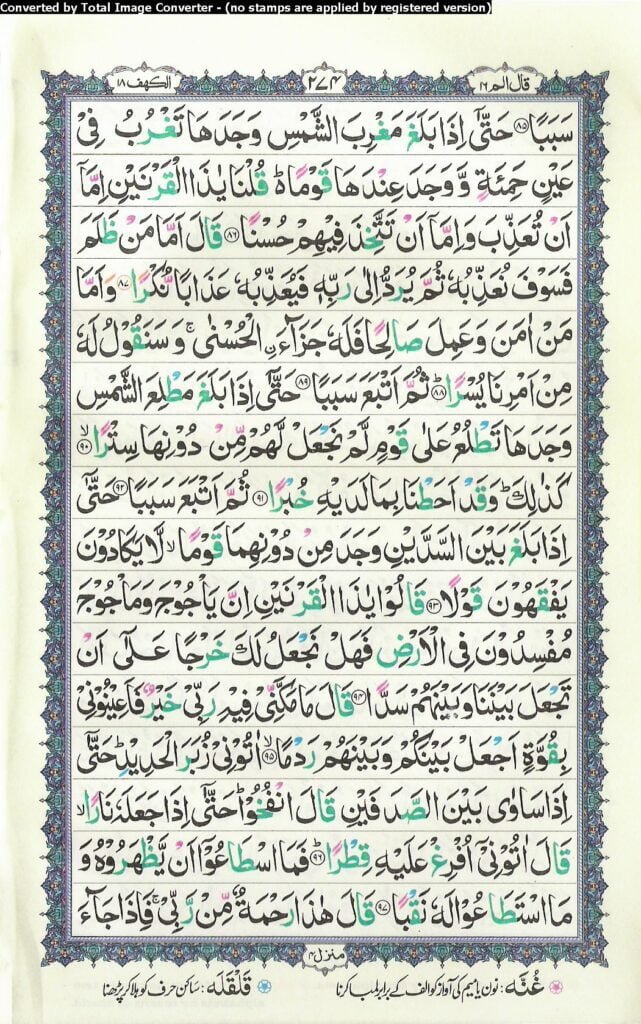 Converted by Total Image Converter - (no stamps are applied by registered version)
قال الم ١٦
٢٧٤
الكهف ١٨
سَبَبًا ﴿٨٥﴾ حَتّٰۤى اِذَا بَلَغَ مَغْرِبَ الشَّمْسِ وَجَدَهَا تَغْرُبُ فِیْ
عَیْنٍ حَمِئَةٍ وَّ وَجَدَ عِنْدَهَا قَوْمًا ؕ۬ قُلْنَا یٰذَا الْقَرْنَیْنِ اِمَّاۤ
اَنْ تُعَذِّبَ وَ اِمَّاۤ اَنْ تَتَّخِذَ فِیْهِمْ حُسْنًا ﴿٨٦﴾ قَالَ اَمَّا مَنْ ظَلَمَ
فَسَوْفَ نُعَذِّبُهٗ ثُمَّ یُرَدُّ اِلٰی رَبِّهٖ فَیُعَذِّبُهٗ عَذَابًا نُّكْرًا ﴿٨٧﴾ وَ اَمَّا
مَنْ اٰمَنَ وَ عَمِلَ صَالِحًا فَلَهٗ جَزَآءَ ۨالْحُسْنٰی ۚ وَ سَنَقُوْلُ لَهٗ
مِنْ اَمْرِنَا یُسْرًا ؕ﴿٨٨﴾ ثُمَّ اَتْبَعَ سَبَبًا ﴿٨٩﴾ حَتّٰۤى اِذَا بَلَغَ مَطْلِعَ الشَّمْسِ
وَجَدَهَا تَطْلُعُ عَلٰی قَوْمٍ لَّمْ نَجْعَلْ لَّهُمْ مِّنْ دُوْنِهَا سِتْرًا ۙ﴿٩٠﴾
كَذٰلِكَ ؕ وَ قَدْ اَحَطْنَا بِمَا لَدَیْهِ خُبْرًا ﴿٩١﴾ ثُمَّ اَتْبَعَ سَبَبًا ﴿٩٢﴾ حَتّٰۤى
اِذَا بَلَغَ بَیْنَ السَّدَّیْنِ وَجَدَ مِنْ دُوْنِهِمَا قَوْمًا ۙ لَّا یَكَادُوْنَ
یَفْقَهُوْنَ قَوْلًا ﴿٩٣﴾ قَالُوْا یٰذَا الْقَرْنَیْنِ اِنَّ یَاْجُوْجَ وَ مَاْجُوْجَ
مُفْسِدُوْنَ فِی الْاَرْضِ فَهَلْ نَجْعَلُ لَكَ خَرْجًا عَلٰۤى اَنْ
تَجْعَلَ بَیْنَنَا وَ بَیْنَهُمْ سَدًّا ﴿٩٤﴾ قَالَ مَا مَكَّنِّیْ فِیْهِ رَبِّیْ خَیْرٌ فَاَعِیْنُوْنِیْ
بِقُوَّةٍ اَجْعَلْ بَیْنَكُمْ وَ بَیْنَهُمْ رَدْمًا ۙ﴿٩٥﴾ اٰتُوْنِیْ زُبَرَ الْحَدِیْدِ ؕ حَتّٰۤى
اِذَا سَاوٰی بَیْنَ الصَّدَفَیْنِ قَالَ انْفُخُوْا ؕ حَتّٰۤى اِذَا جَعَلَهٗ نَارًا ۙ
قَالَ اٰتُوْنِیْۤ اُفْرِغْ عَلَیْهِ قِطْرًا ؕ﴿٩٦﴾ فَمَا اسْطَاعُوْۤا اَنْ یَّظْهَرُوْهُ وَ
مَا اسْتَطَاعُوْا لَهٗ نَقْبًا ﴿٩٧﴾ قَالَ هٰذَا رَحْمَةٌ مِّنْ رَّبِّیْ ۚ فَاِذَا جَآءَ
منزل ٤
غُنَّه: نون یا میم کی آواز کو الف کے برابر لمبا کرنا
قَلْقَلَه: ساکن حرف کو ہلا کر پڑھنا